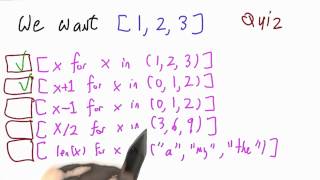 We want [1,2,3] Quiz
[x for x in (1,2,3)]
[x+1 for x in (0,1,2)]
[x-1 for x in (0,1,2)]
[x/2 for x in (3,6,9)]
[len(x) for x ("a","my","the")]